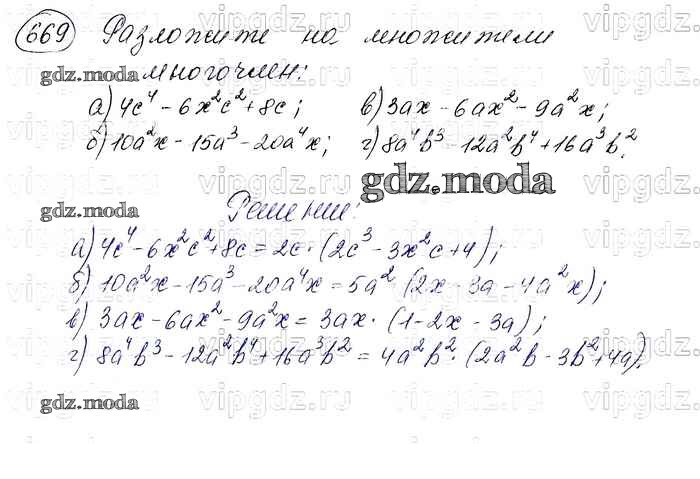 669 Разложите на множители
многочлен:
а) 4c⁴ - 6x²c² + 8c; в) 3ax - 6ax² - 9a²x;
б) 10a²x - 15a³ - 20a⁴x; г) 8a⁴b³ - 12a²b⁴ + 16a³b².
Решение:
а) 4c⁴ - 6x²c² + 8c = 2c · (2c³ - 3x²c + 4);
б) 10a²x - 15a³ - 20a⁴x = 5a² (2x - 3a - 4a²x);
в) 3ax - 6ax² - 9a²x = 3ax · (1 - 2x - 3a);
г) 8a⁴b³ - 12a²b⁴ + 16a³b² = 4a²b² · (2a²b - 3b² + 4a).
gdz.moda
gdz.moda
gdz.moda
gdz.moda
vipgdz.ru